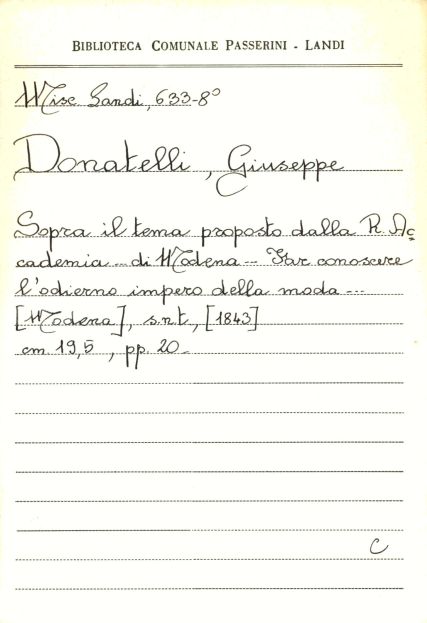 BIBLIOTECA COMUNALE PASSERINI - LANDI
Misc Landi, 633-8°
Donatelli, Giuseppe
Sopra il tema proposto dalla R. Ac=
cademia ... di Modena ... Far conoscere
l'odierno impero della moda ...
[Modena], s.n.t., [1843]
cm. 19,5, pp. 20_
C